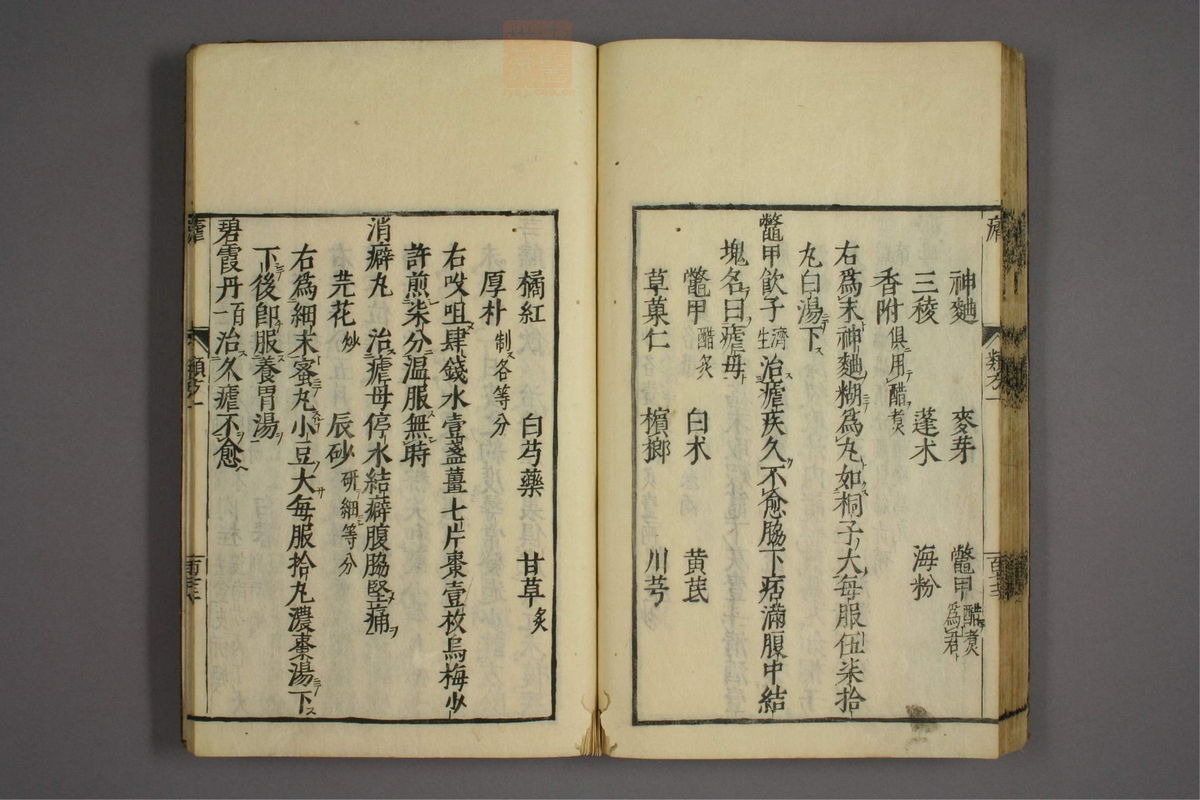 神麯 麥芽 鼈甲醋煮爲君
三稜 蓬朮 海粉
香附俱用醋煮
右爲末神麯糊爲丸如桐子大每服伍柒拾
丸白湯下
鼈甲飲子濟生治瘧疾久不愈脇下痞滿腹中結
塊名曰瘧母
鼈甲醋炙 白朮 黄芪
草菓仁 檳榔 川芎
橘紅 白芍藥 甘草炙
厚朴制各等分
右㕮咀肆錢水壹盞薑七片棗壹枚烏梅少
許煎柒分温服無時
消癖丸 治瘧母停水結癖腹脇堅痛
芫花炒 辰砂研細等分
右爲細末蜜丸小豆大每服拾丸濃棗湯下
下後卽服養胃湯
碧霞丹百一治久瘧不愈
瘧 類方一